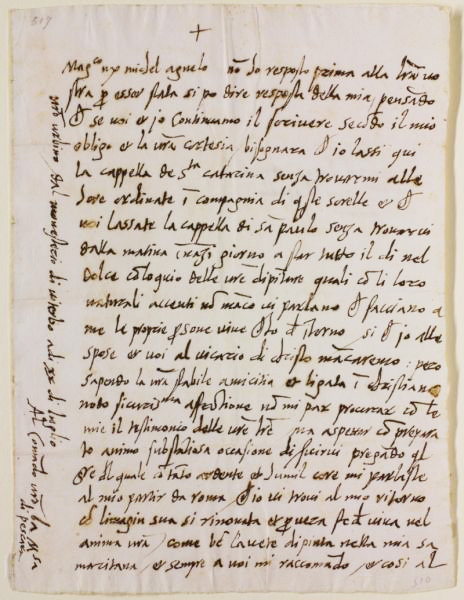 517
+
Mag.co mr michel agnelo nō ho resposto prima alla lrā vo
stra p esser stata si po dire resposta della mia pensādo
ch se voi et io continuamo il scrivere secōdo il mio
obligo et la vrā cortesia bisognara ch io lassi qui
la cappella de S.ta catarina senza trovarmi alle
hore ordinate ī compagnia di qste sorelle et ch
voi lassate la cappella di sā paulo senza trovarvi
dalla matina ināzi giorno a star tutto il dì nel
dolce cōloquio delle vre dipīture quali cō li loro
naturali accenti nō māco vi parlano ch facciano a
me le proprie psone vive ch ho d ītorno sì ch io alle
spose et voi al vicario di christo mācaremo: pero
sapendo la vrā stabile amicitia et ligata ī christiano
nodo affettione nō mi par procurar cō le
mie il testimonio delle vre lrē ma aspettar cō prepara
to animo occasione di pregādo ql
del quale cō tāto ardente et humil core mi parlaste
al mio partir da roma ch io vi trovi al mio ritorno
cō limagin sua si rinovata et p vera fede viva nel
anima vrā come bē lavete dipinta nella mia sa
maritana et sempre a voi mi raccomādo et così al
vrō urbino dal monasterio di viterbo adi xx di luglio
Al comādo vrō la M.sa
di pescara
510